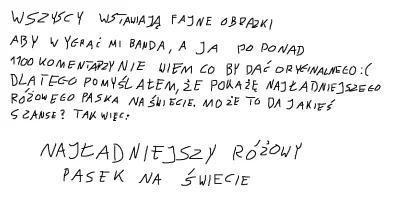 WSZYSCY WSTAWIAJĄ FAJNE OBRAZKI
ABY WYGRAĆ MI BANDA, A JA PO PONAD
1100 KOMENTARZY NIE WIEM CO BY DAĆ ORYGINALNEGO :(
DLATEGO POMYŚLAŁEM, ŻE POKAŻĘ NAJŁADNIEJSZEGO
RÓŻOWEGO PASKA NA ŚWIECIE. MOŻE TO DA JAKIEŚ
SZANSE? TAK WIĘC:
NAJŁADNIEJSZY RÓŻOWY
PASEK NA ŚWIECIE